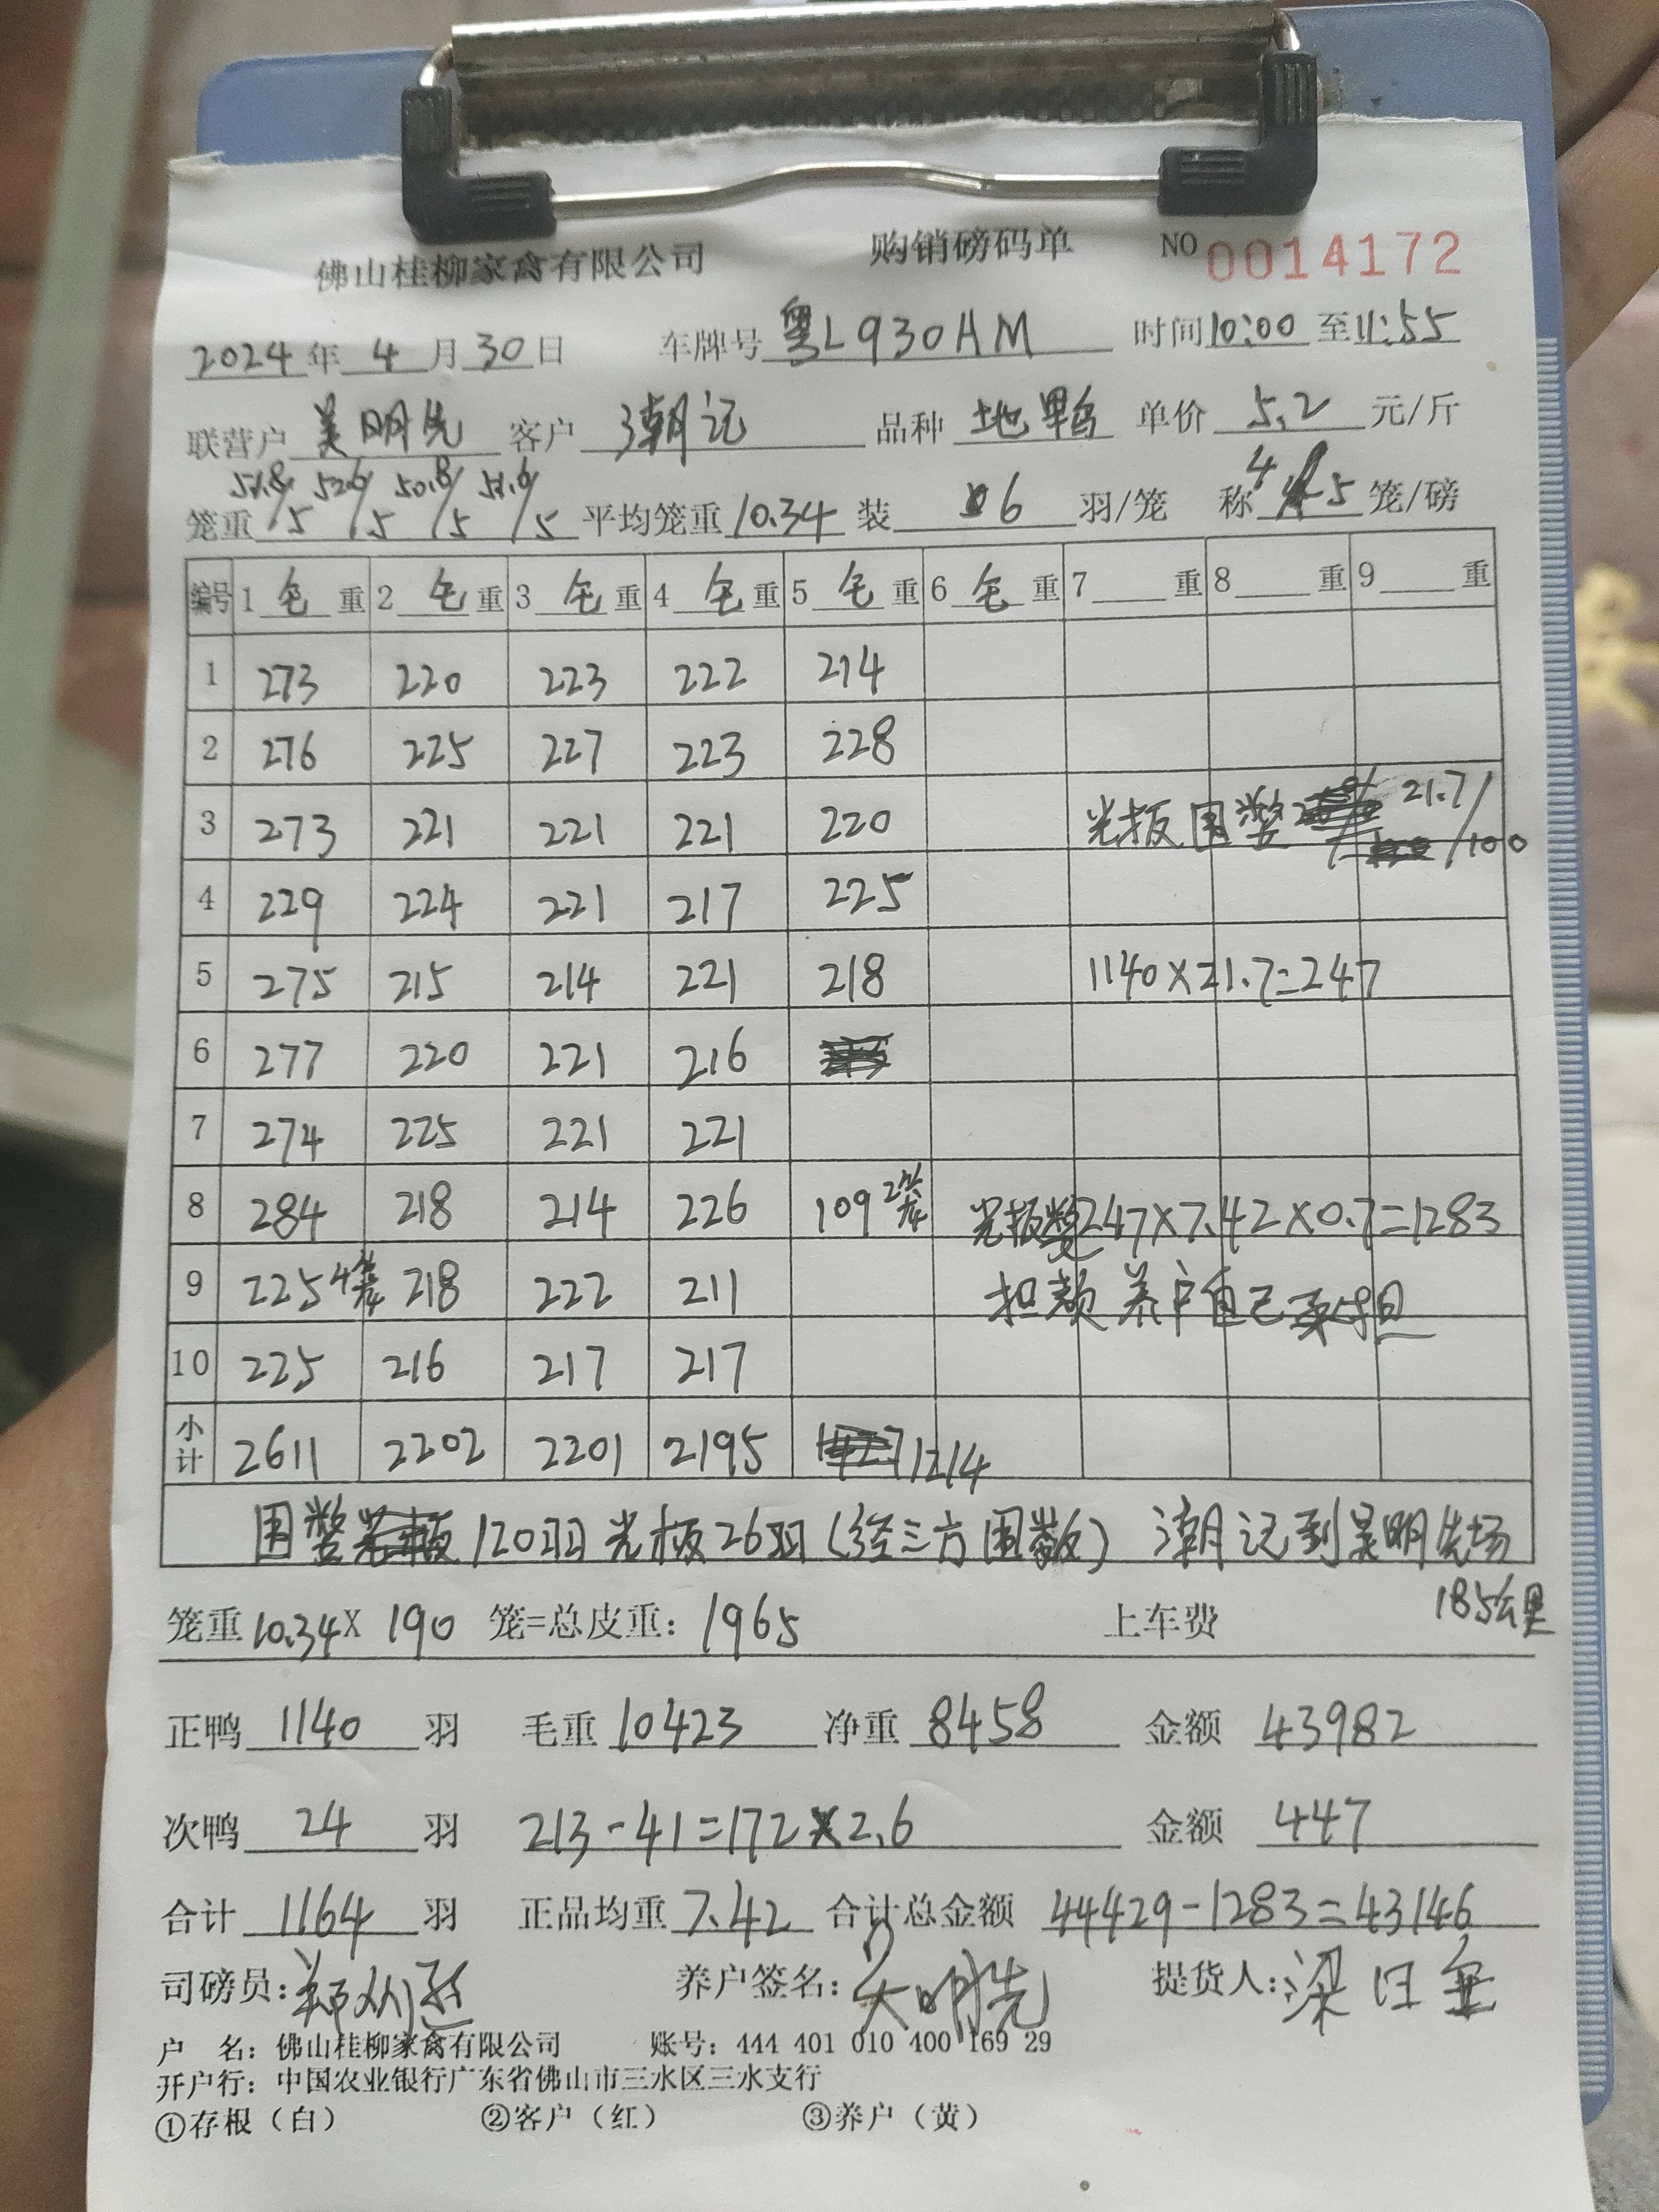 佛山桂柳家禽有限公司 购销磅码单 NO 0014172
2024年 4月30日 车牌号 粤L930HM 时间10:00至11:55
联营户 吴明先 客户 潮记 品种 地鸭 单价 5.2 元/斤
笼重 51.8/5 52.6/5 50.8/5 51.6/5 平均笼重10.34 装 6 羽/笼 称 4 5 笼/磅
编号 1 毛 重 2 毛 重 3 毛 重 4 毛 重 5 毛 重 6 毛 重 7 重 8 重 9 重
1 273 220 223 222 214
2 276 225 227 223 228
3 273 221 221 221 220 光扳围鳖 21.7/100
4 229 224 221 217 225
5 275 215 214 221 218 1140X21.7=247
6 277 220 221 216
7 274 225 221 221
8 284 218 214 226 109 2笼 光扳 247X7.42X0.7=1283
9 225 4笼 218 222 211 担额 养户自己承担
10 225 216 217 217
小计 2611 2202 2201 2195 1214
围鳖 120羽 光板26羽(经三方围数) 潮记到吴明先场
185公里
笼重10.34X 190 笼=总皮重: 1965 上车费
正鸭 1140 羽 毛重 10423 净重 8458 金额 43982
次鸭 24 羽 213-41=172X2.6 金额 447
合计 1164 羽 正品均重 7.42 合计总金额 44429-1283=43146
司磅员: 养户签名: 吴明先 提货人:梁
户 名: 佛山桂柳家禽有限公司 账号: 444 401 010 400 169 29
开户行: 中国农业银行广东省佛山市三水区三水支行
①存根(白) ②客户(红) ③养户(黄)